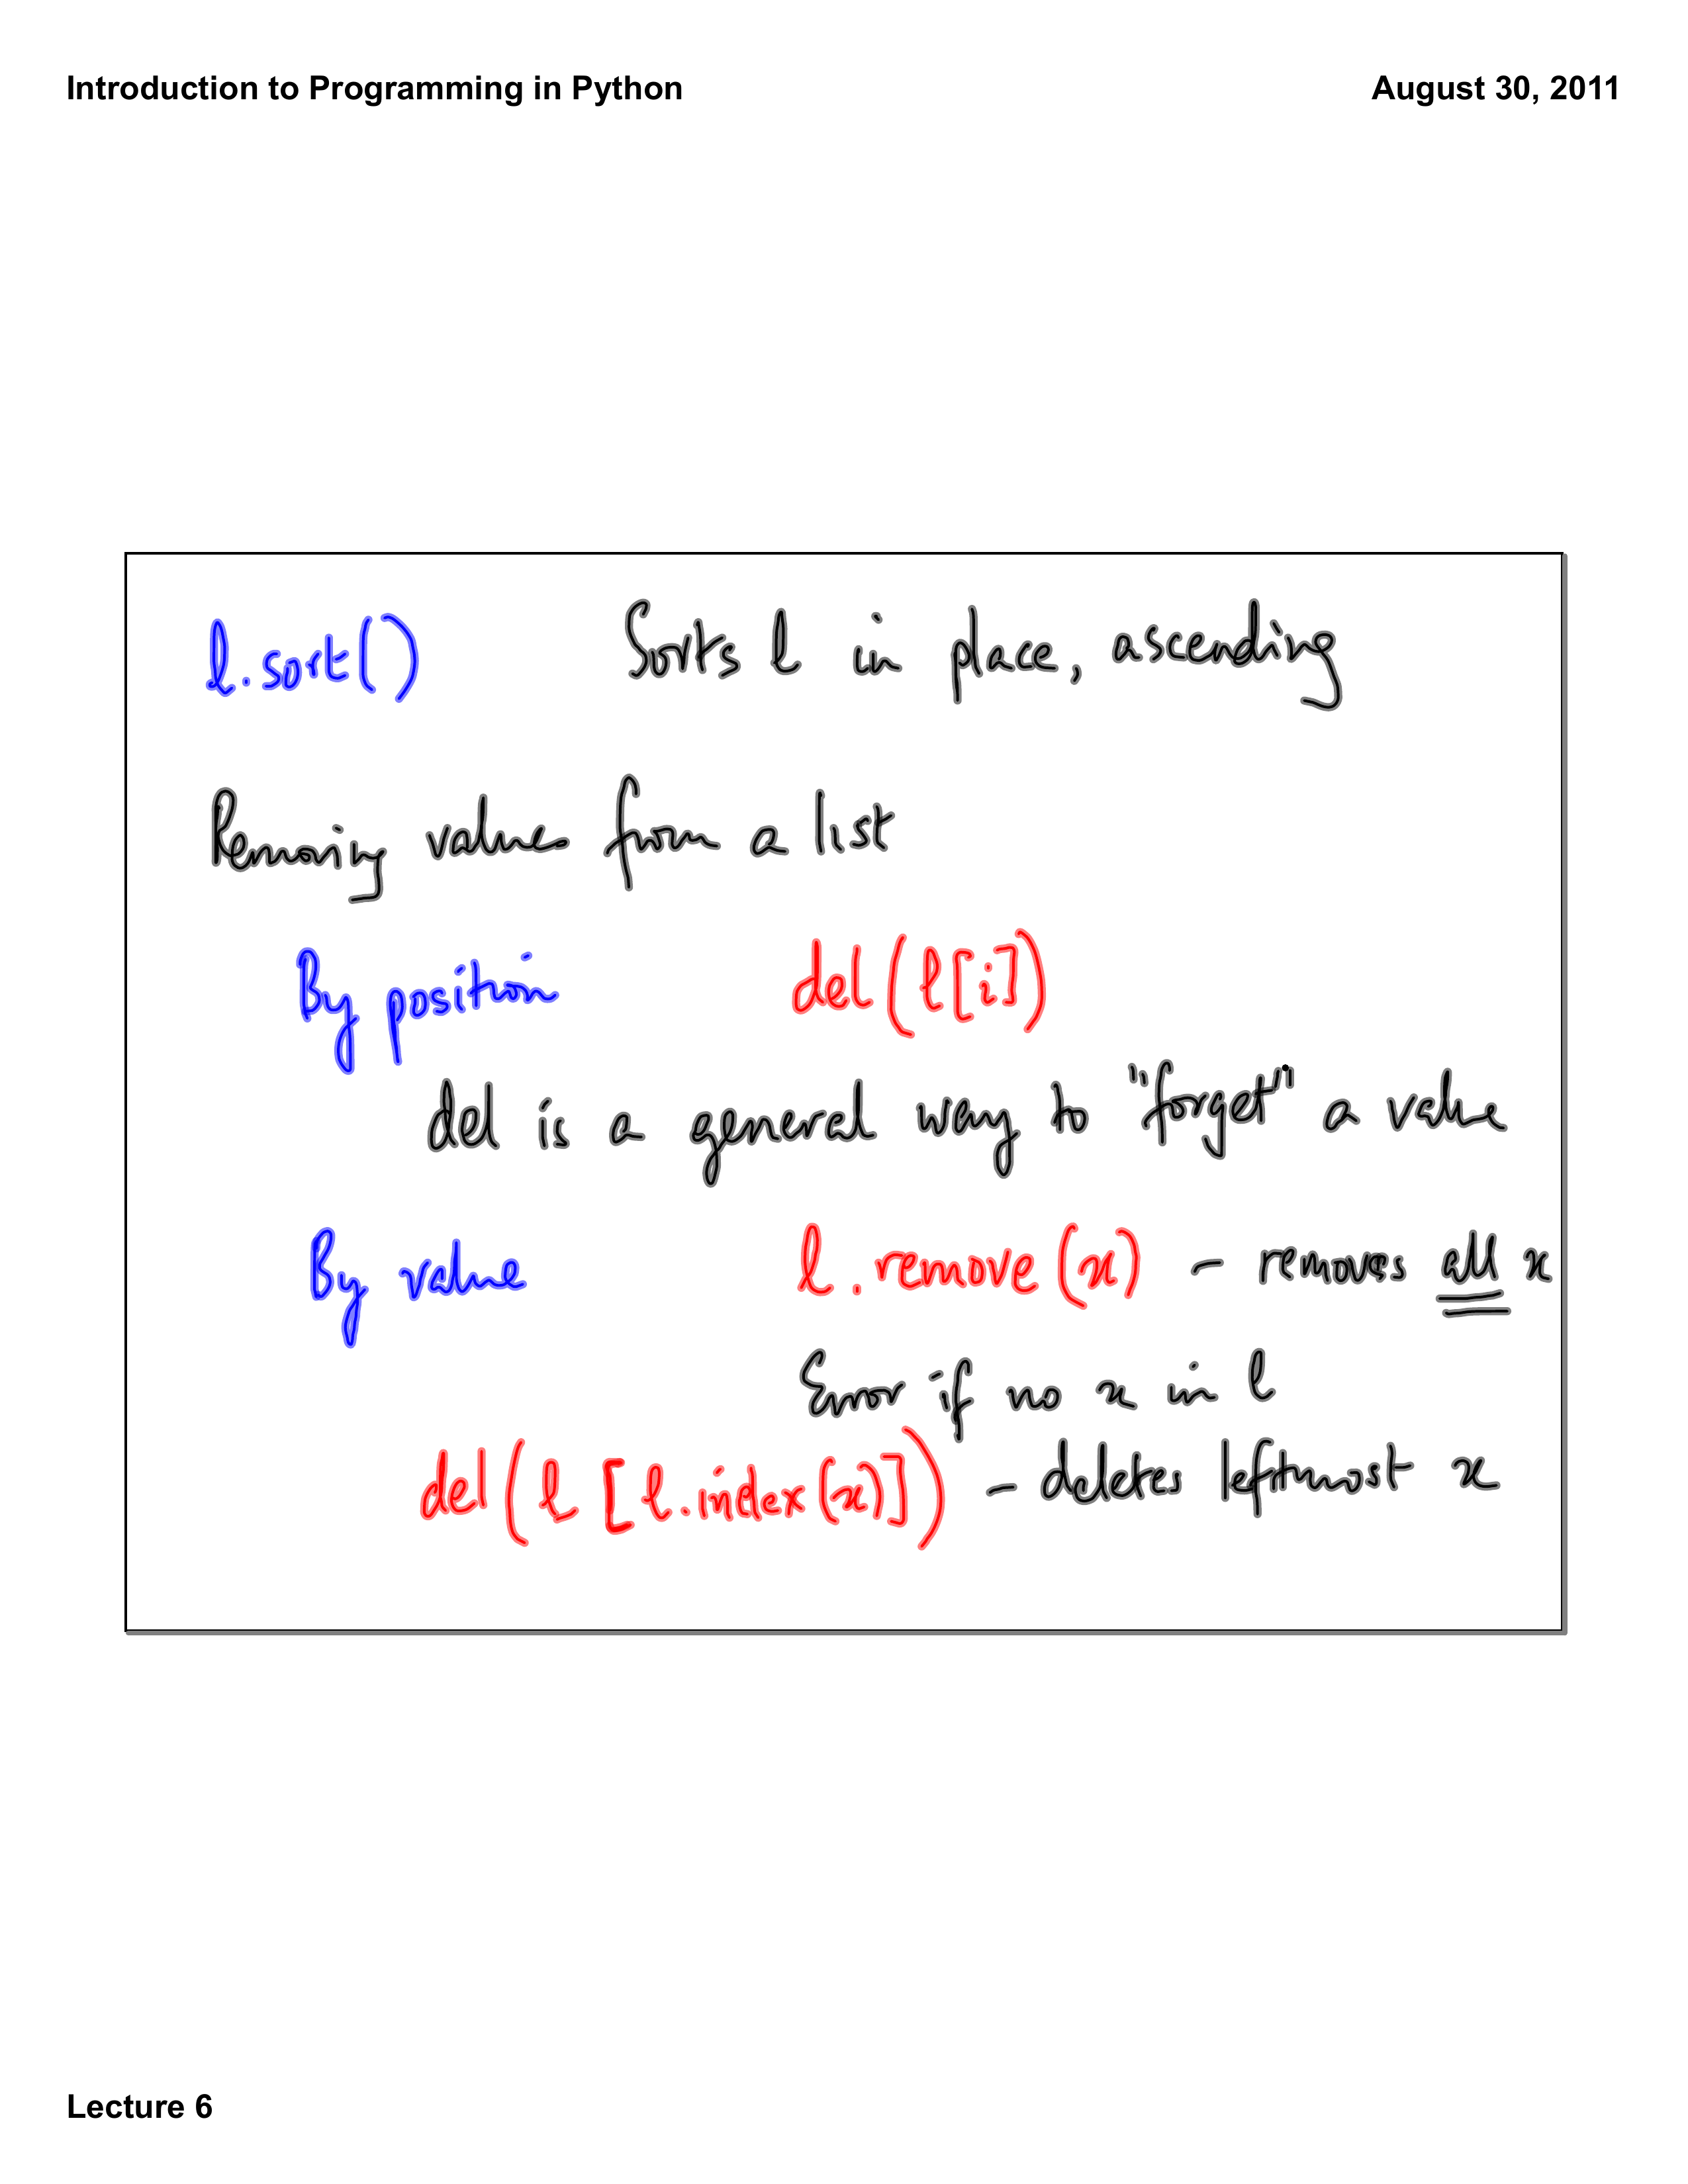 Introduction to Programming in Python August 30, 2011
l.sort() Sorts l in place, ascending
Removing values from a list
By position del(l[i])
del is a general way to "forget" a value
By value l.remove(x) - removes all x
Error if no x in l
del(l[l.index(x)]) - deletes leftmost x
Lecture 6